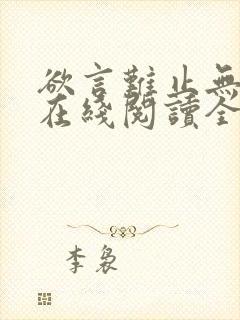 欲言難止無
在綫閱讀全
李裊